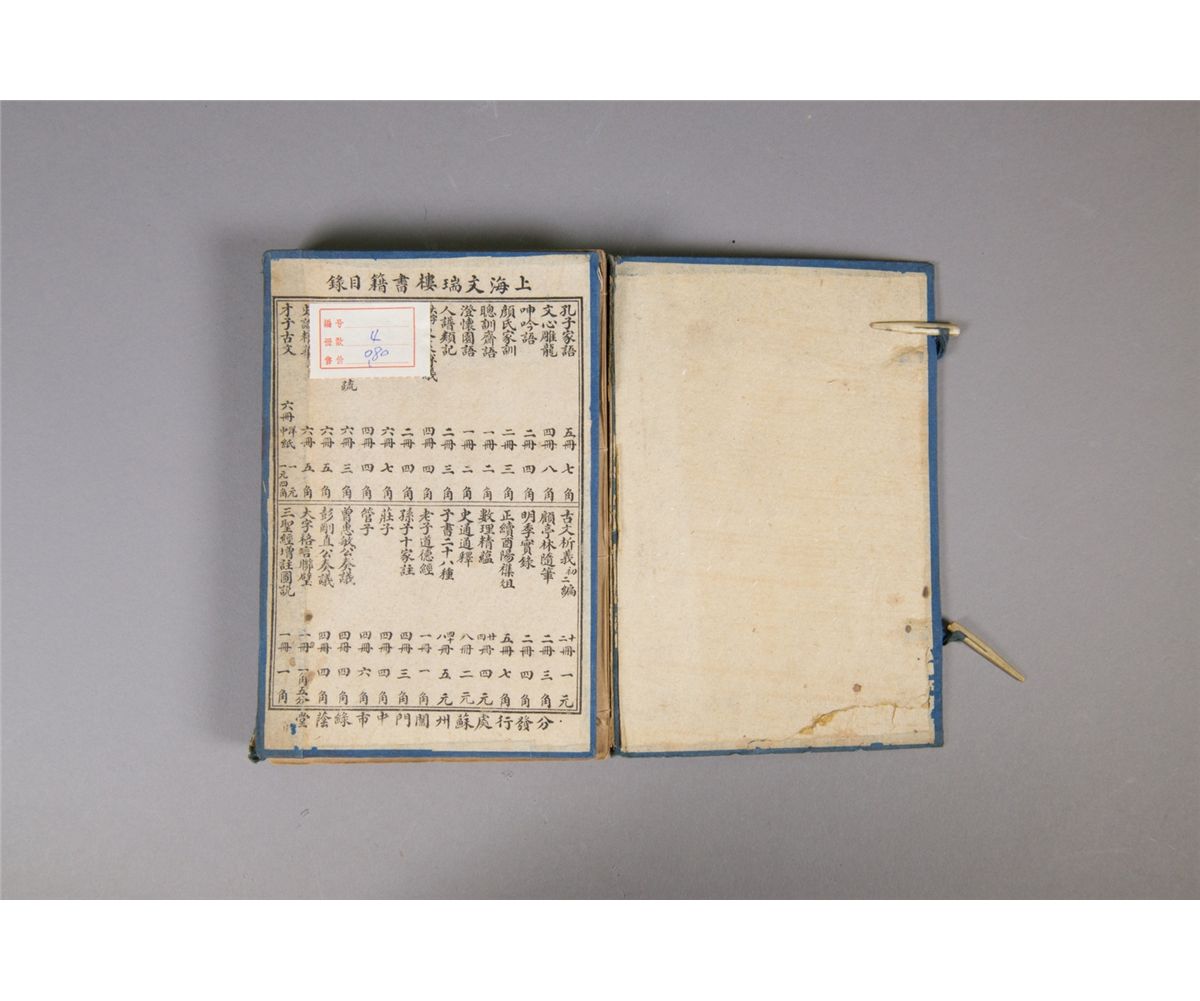 上海文瑞樓書籍目錄
孔子家語 五冊 七角
文心雕龍 四冊 八角
呻吟語 二冊 四角
顏氏家訓 二冊 三角
聰訓齋語 一冊 二角
澄懷園語 一冊 二角
人譜類記 二冊 三角
議 四冊 四角
二冊 四角
六冊 七角
四冊 四角
疏 六冊 三角
六冊 五角
才子古文 六冊 洋紙 一元 中紙 一元四角
古文析義初二編 十二冊 一元
顧亭林隨筆 二冊 三角
明季實錄 二冊 四角
正續酉陽雜俎 五冊 七角
數理精蘊 廿四冊 四元
史通通釋 八冊 二元
子書二十八種 四十八冊 五元
老子道德經 一冊 一角
孫子十家註 四冊 三角
莊子 四冊 四角
管子 四冊 六角
曾惠敏公奏議 四冊 四角
彭剛直公奏議 四冊 四角
大字格言聯璧 一冊 一角五分
三聖經增註圖說 一冊 一角
分發行處蘇州閶門中市綠蔭堂
編号
冊数 4
售价 0.80